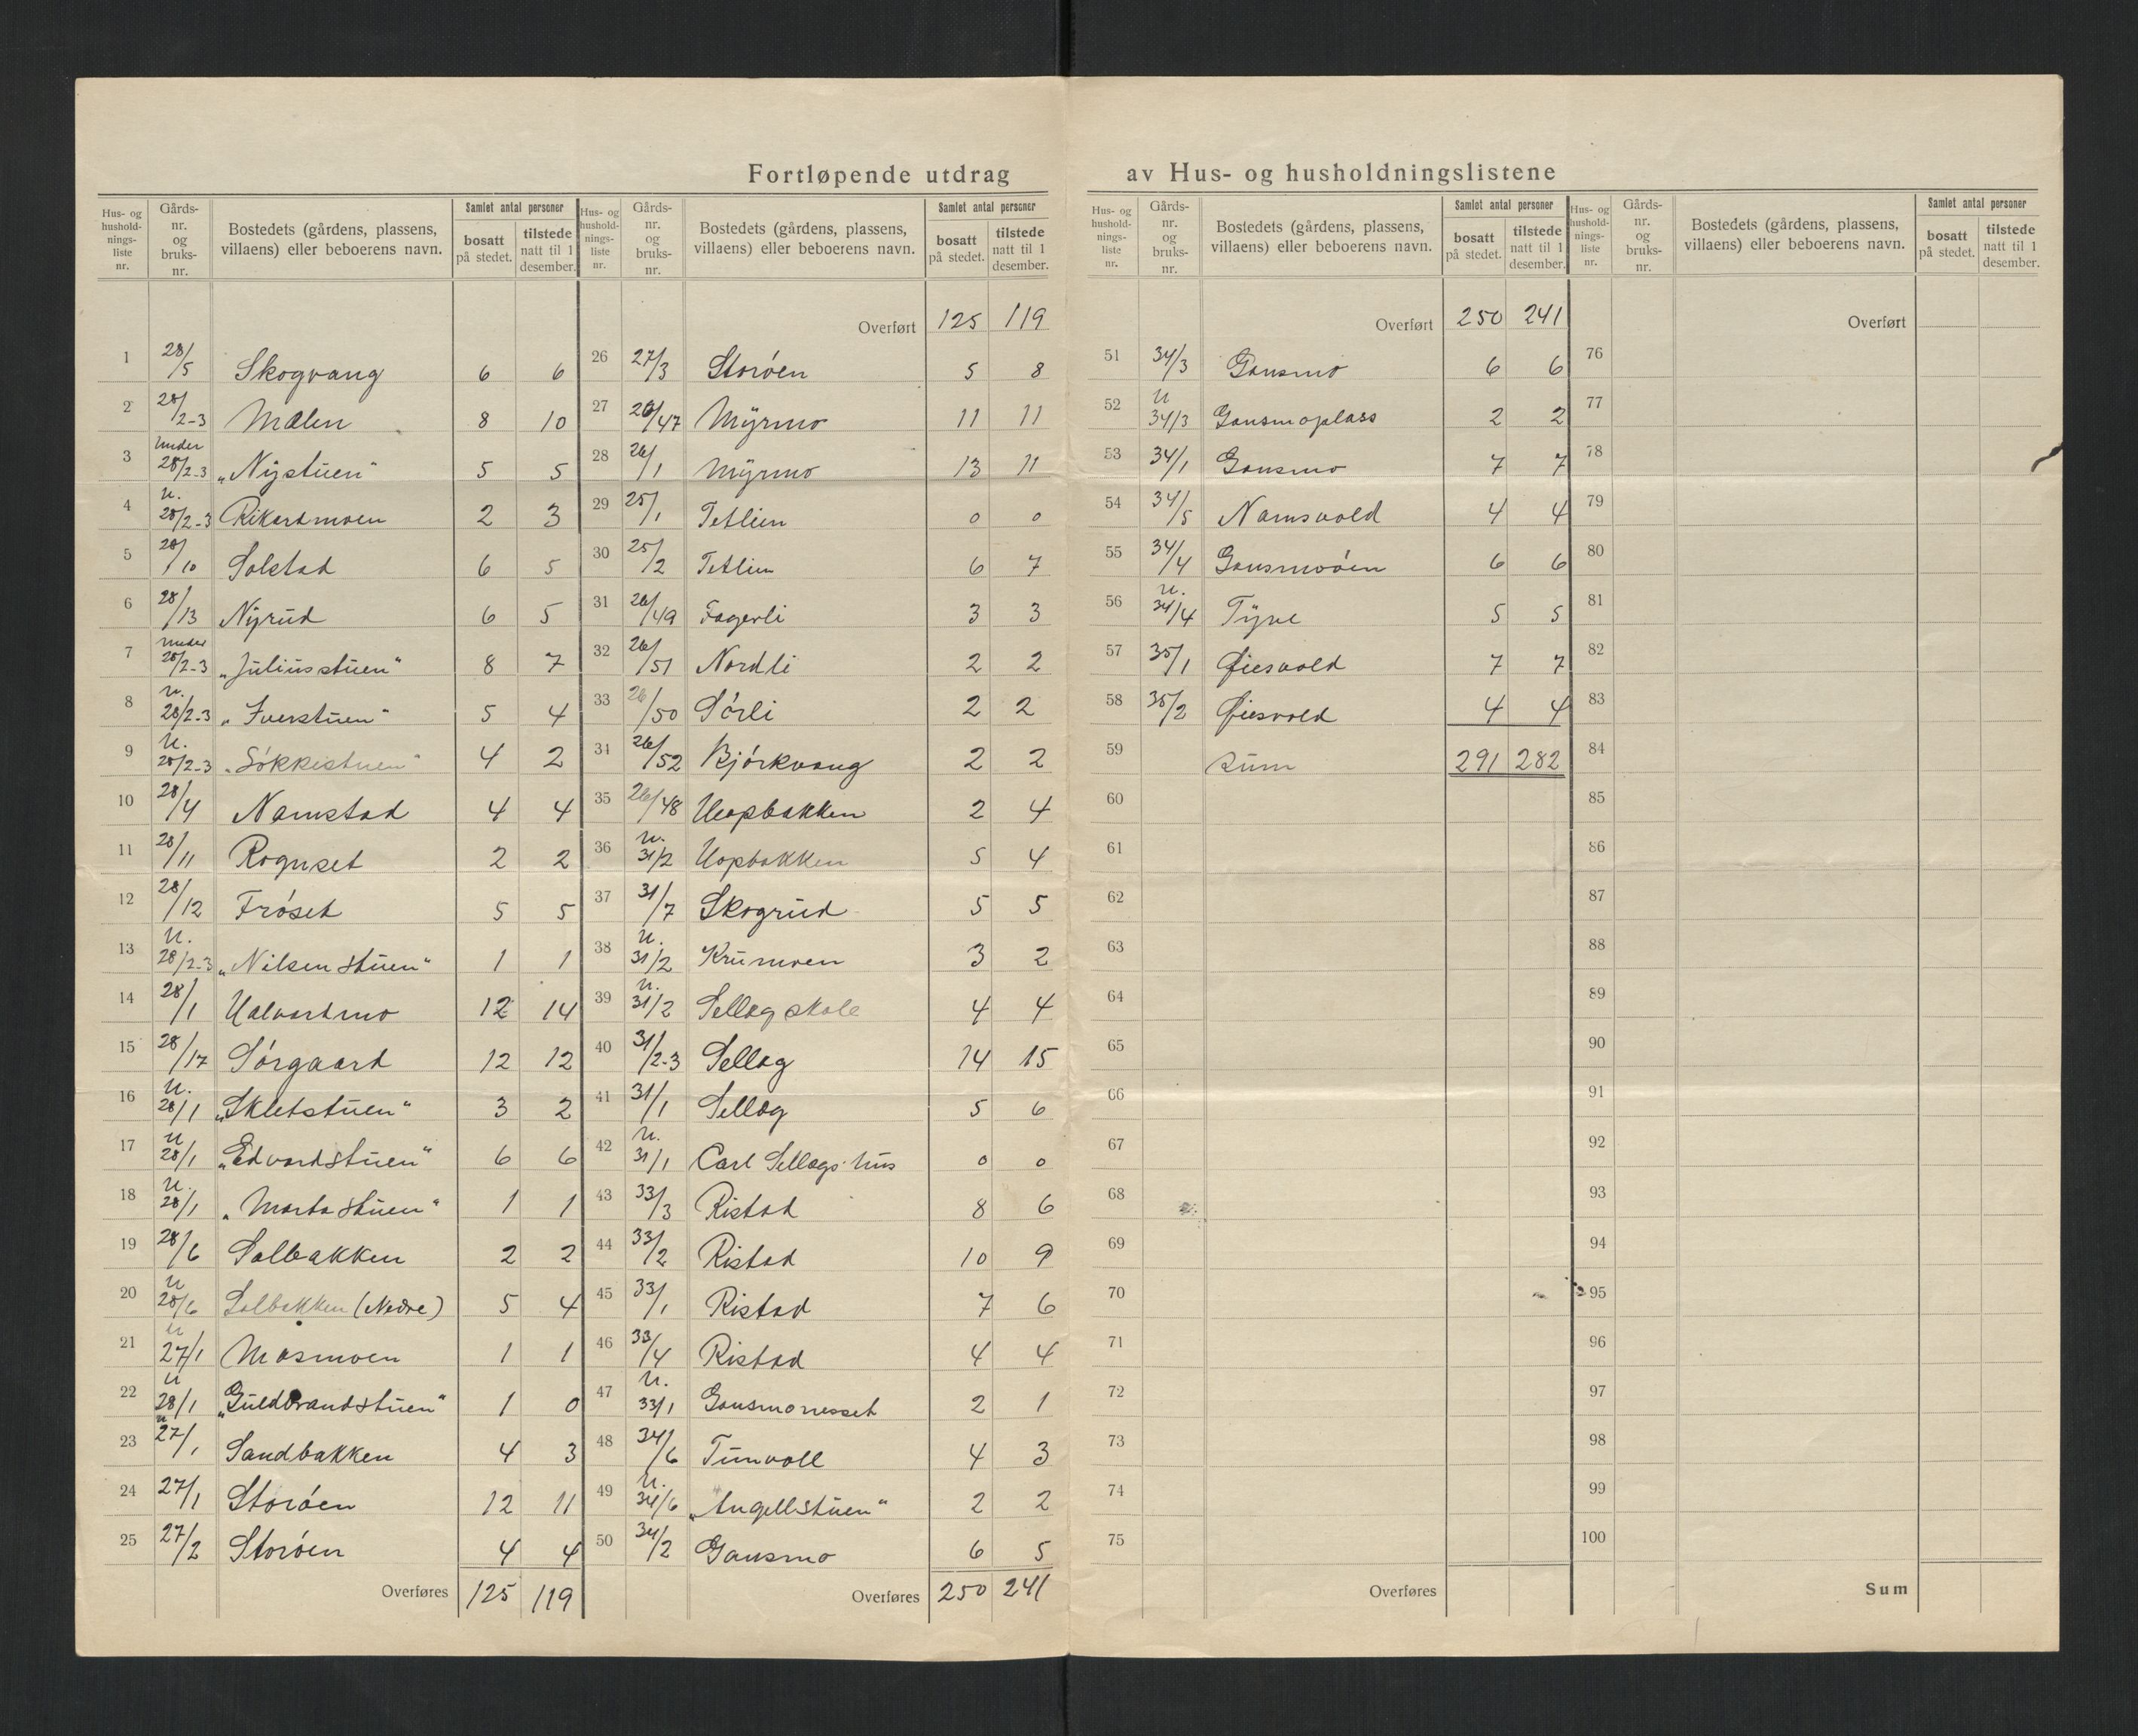 Fortløpende utdrag av Hus- og husholdningslistene
Hus- og hushold-nings-liste nr. Gårds-nr. og bruks-nr. Bostedets (gårdens, plassens, villaens) eller beboerens navn. Samlet antal personer bosatt på stedet. tilstede natt til 1 desember.
1 28/5 Skogvang 6 6
2 28/2-3 Mælen 8 10
3 Under 28/2-3 „Nystuen“ 5 5
4 u. 28/2-3 Rikartmoen 2 3
5 28/10 Solstad 6 5
6 28/13 Nyrud 6 5
7 Under 28/2-3 „Juliusstuen“ 8 7
8 u. 28/2-3 „Iverstuen“ 5 4
9 U. 28/2-3 „Søkkistuen“ 4 2
10 28/4 Namstad 4 4
11 28/11 Rognset 2 2
12 28/12 Frøset 5 5
13 U. 28/2-3 „Nilsenstuen“ 1 1
14 28/1 Halvardmo 12 14
15 28/17 Sørgaard 12 12
16 U. 28/1 „Skletstuen“ 3 2
17 U 28/1 „Edvardstuen“ 6 6
18 U. 28/1 „Martastuen“ 1 1
19 28/6 Solbakken 2 2
20 U 28/6 Solbakken (Nedre) 5 4
21 U 27/1 Mosmoen 1 1
22 U 28/1 „Guldbrandstuen“ 1 0
23 u 27/1 Sandbakken 4 3
24 27/1 Storøen 12 11
25 27/2 Storøen 4 4
Overføres 125 119
Hus- og hushold-nings-liste nr. Gårds-nr. og bruks-nr. Bostedets (gårdens, plassens, villaens) eller beboerens navn. Samlet antal personer bosatt på stedet. tilstede natt til 1 desember.
Overført 125 119
26 27/3 Storøen 5 8
27 26/47 Myrmo 11 11
28 26/1 Myrmo 13 11
29 25/1 Tetlien 0 0
30 25/2 Tetlien 6 7
31 26/49 Fagerli 3 3
32 26/51 Nordli 2 2
33 26/50 Sørli 2 2
34 26/52 Bjørkvang 2 2
35 26/48 Hopbakken 2 4
36 U. 31/2 Hopbakken 5 4
37 31/7 Skogrud 5 5
38 U. 31/2 Krumoen 3 2
39 U. 31/2 Sellæg skole 4 4
40 31/2-3 Sellæg 14 15
41 31/1 Sellæg 5 6
42 U. 31/1 Carl Sellægs hus 0 0
43 33/3 Ristad 8 6
44 33/2 Ristad 10 9
45 33/1 Ristad 7 6
46 33/4 Ristad 4 4
47 U. 33/1 Gansmonesset 2 1
48 34/6 Tunvoll 4 3
49 U. 34/6 „Angellstuen“ 2 2
50 34/2 Gansmo 6 5
Overføres 250 241
Hus- og hushold-nings-liste nr. Gårds-nr. og bruks-nr. Bostedets (gårdens, plassens, villaens) eller beboerens navn. Samlet antal personer bosatt på stedet. tilstede natt til 1 desember.
Overført 250 241
51 34/3 Gansmo 6 6
52 U 34/3 Gansmoplass 2 2
53 34/1 Gansmo 7 7
54 34/5 Namsvold 4 4
55 34/4 Gansmoøen 6 6
56 U. 34/4 Tyve 5 5
57 35/1 Øiesvold 7 7
58 35/2 Øiesvold 4 4
59 Sum 291 282
60
61
62
63
64
65
66
67
68
69
70
71
72
73
74
75
Overføres
Hus- og hushold-nings-liste nr. Gårds-nr. og bruks-nr. Bostedets (gårdens, plassens, villaens) eller beboerens navn. Samlet antal personer bosatt på stedet. tilstede natt til 1 desember.
Overført
76
77
78
79
80
81
82
83
84
85
86
87
88
89
90
91
92
93
94
95
96
97
98
99
100
Sum